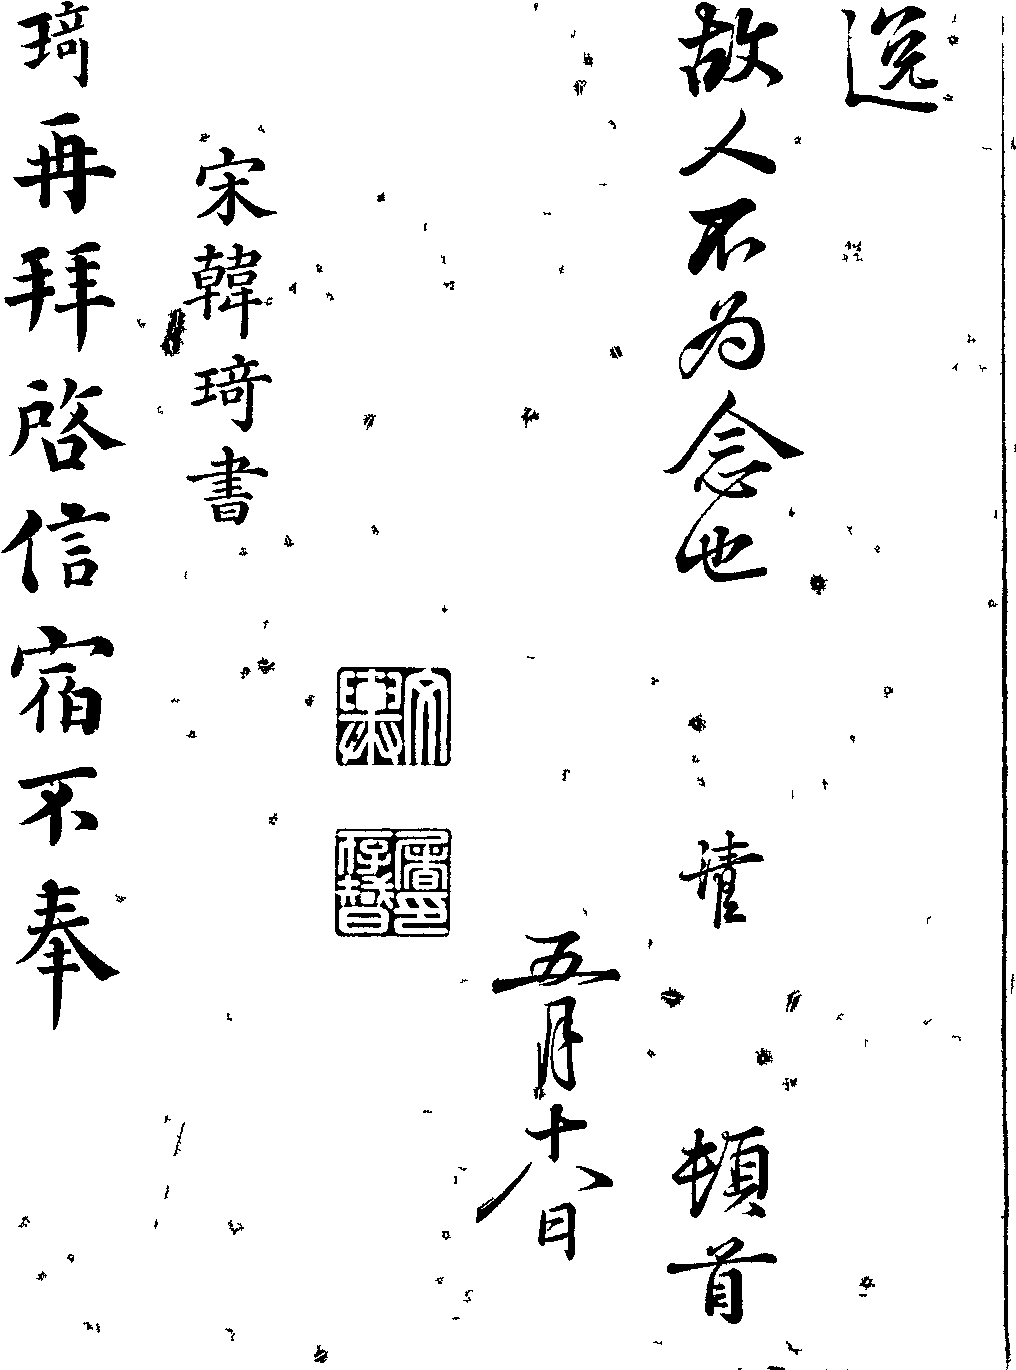 逸
故人不为念也 頓首
五月十八日
宋韓琦書
琦再拜啓信宿不奉